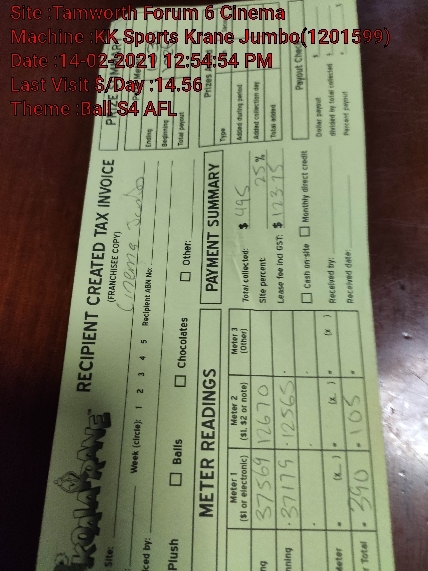 Site :Tamworth Forum 6 Cinema
Machine :KK Sports Krane Jumbo(1201599)
Date :14-02-2021 12:54:54 PM
Last Visit $/Day :14.56
Theme :Ball S4 AFL
KOALA KRANE
RECIPIENT CREATED TAX INVOICE
(FRANCHISEE COPY)
Site: Cinema Jumbo
Week (circle): 1 2 3 4 5 Recipient ABN No:
Plush Balls Chocolates Other:
METER READINGS
Meter 1 ($1 or electronic) Meter 2 ($1, $2 or note) Meter 3 (Other)
37569 12670
37179 12565
Meter = (x ) = (x ) = (x )
Total = 390 = 105 =
PAYMENT SUMMARY
Total collected: $ 495
Site percent: 25 %
Lease fee incl GST: $ 123.75
Cash on-site Monthly direct credit
Received by:
Received date:
Ending
Beginning
Total payout
Type
Added during period
Added collection day
Total added
Dollar payout $
divided by total collected $
Percent payout